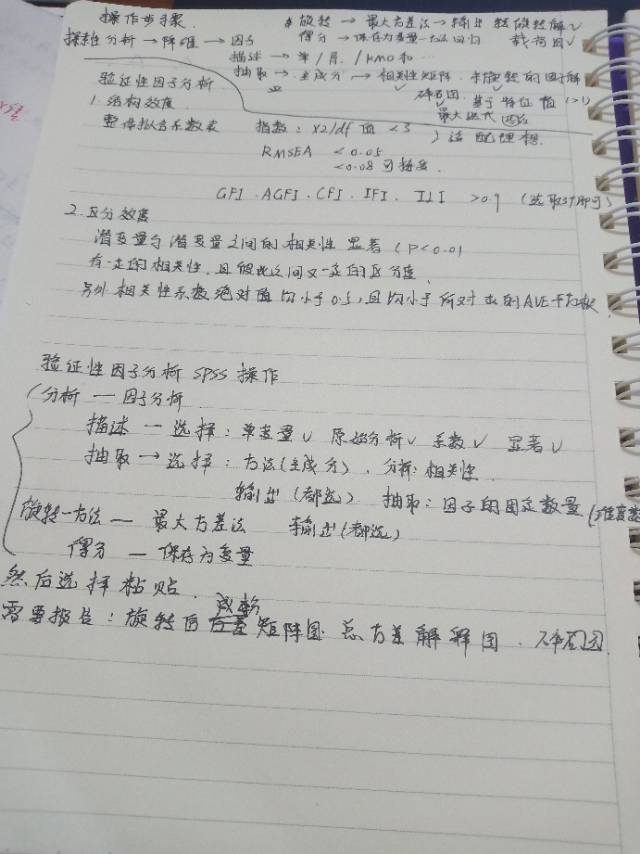 操作步骤
旋转 → 最大方差法 → 输出 旋转解√
探索性分析 → 降维 → 因子
得分 → 保存为变量-方法回归 载荷图√
描述 → 单/原/KMO和…
抽取 → 主成分 → 相关性矩阵 未旋转的因子解
碎石图 基于特征值(>1)
最大迭代
验证性因子分析
1. 结构效度
整体拟合系数表 指数: X2/df 值 <3 适配理想
RMSEA <0.05
<0.08 可接受
GFI . AGFI . CFI . IFI . TLI >0.9 (选取3个即可)
2. 区分效度
潜变量与潜变量之间的相关性 显著 (P<0.01
有一定的相关性, 且彼此之间又一定的区分度
另外相关性系数绝对值均小于0.5, 且均小于所对应的AVE平方根
验证性因子分析 SPSS 操作
分析 — 因子分析
描述 — 选择: 单变量√ 原始分析√ 系数√ 显著√
抽取 → 选择: 方法(主成分) . 分析: 相关性
输出(都选) 抽取: 因子的固定数量 (维度数
旋转-方法 — 最大方差法 输出(都选)
得分 — 保存为变量
然后选择粘贴 .
需要报告: 旋转后成分矩阵图 总方差解释图 . 碎石图